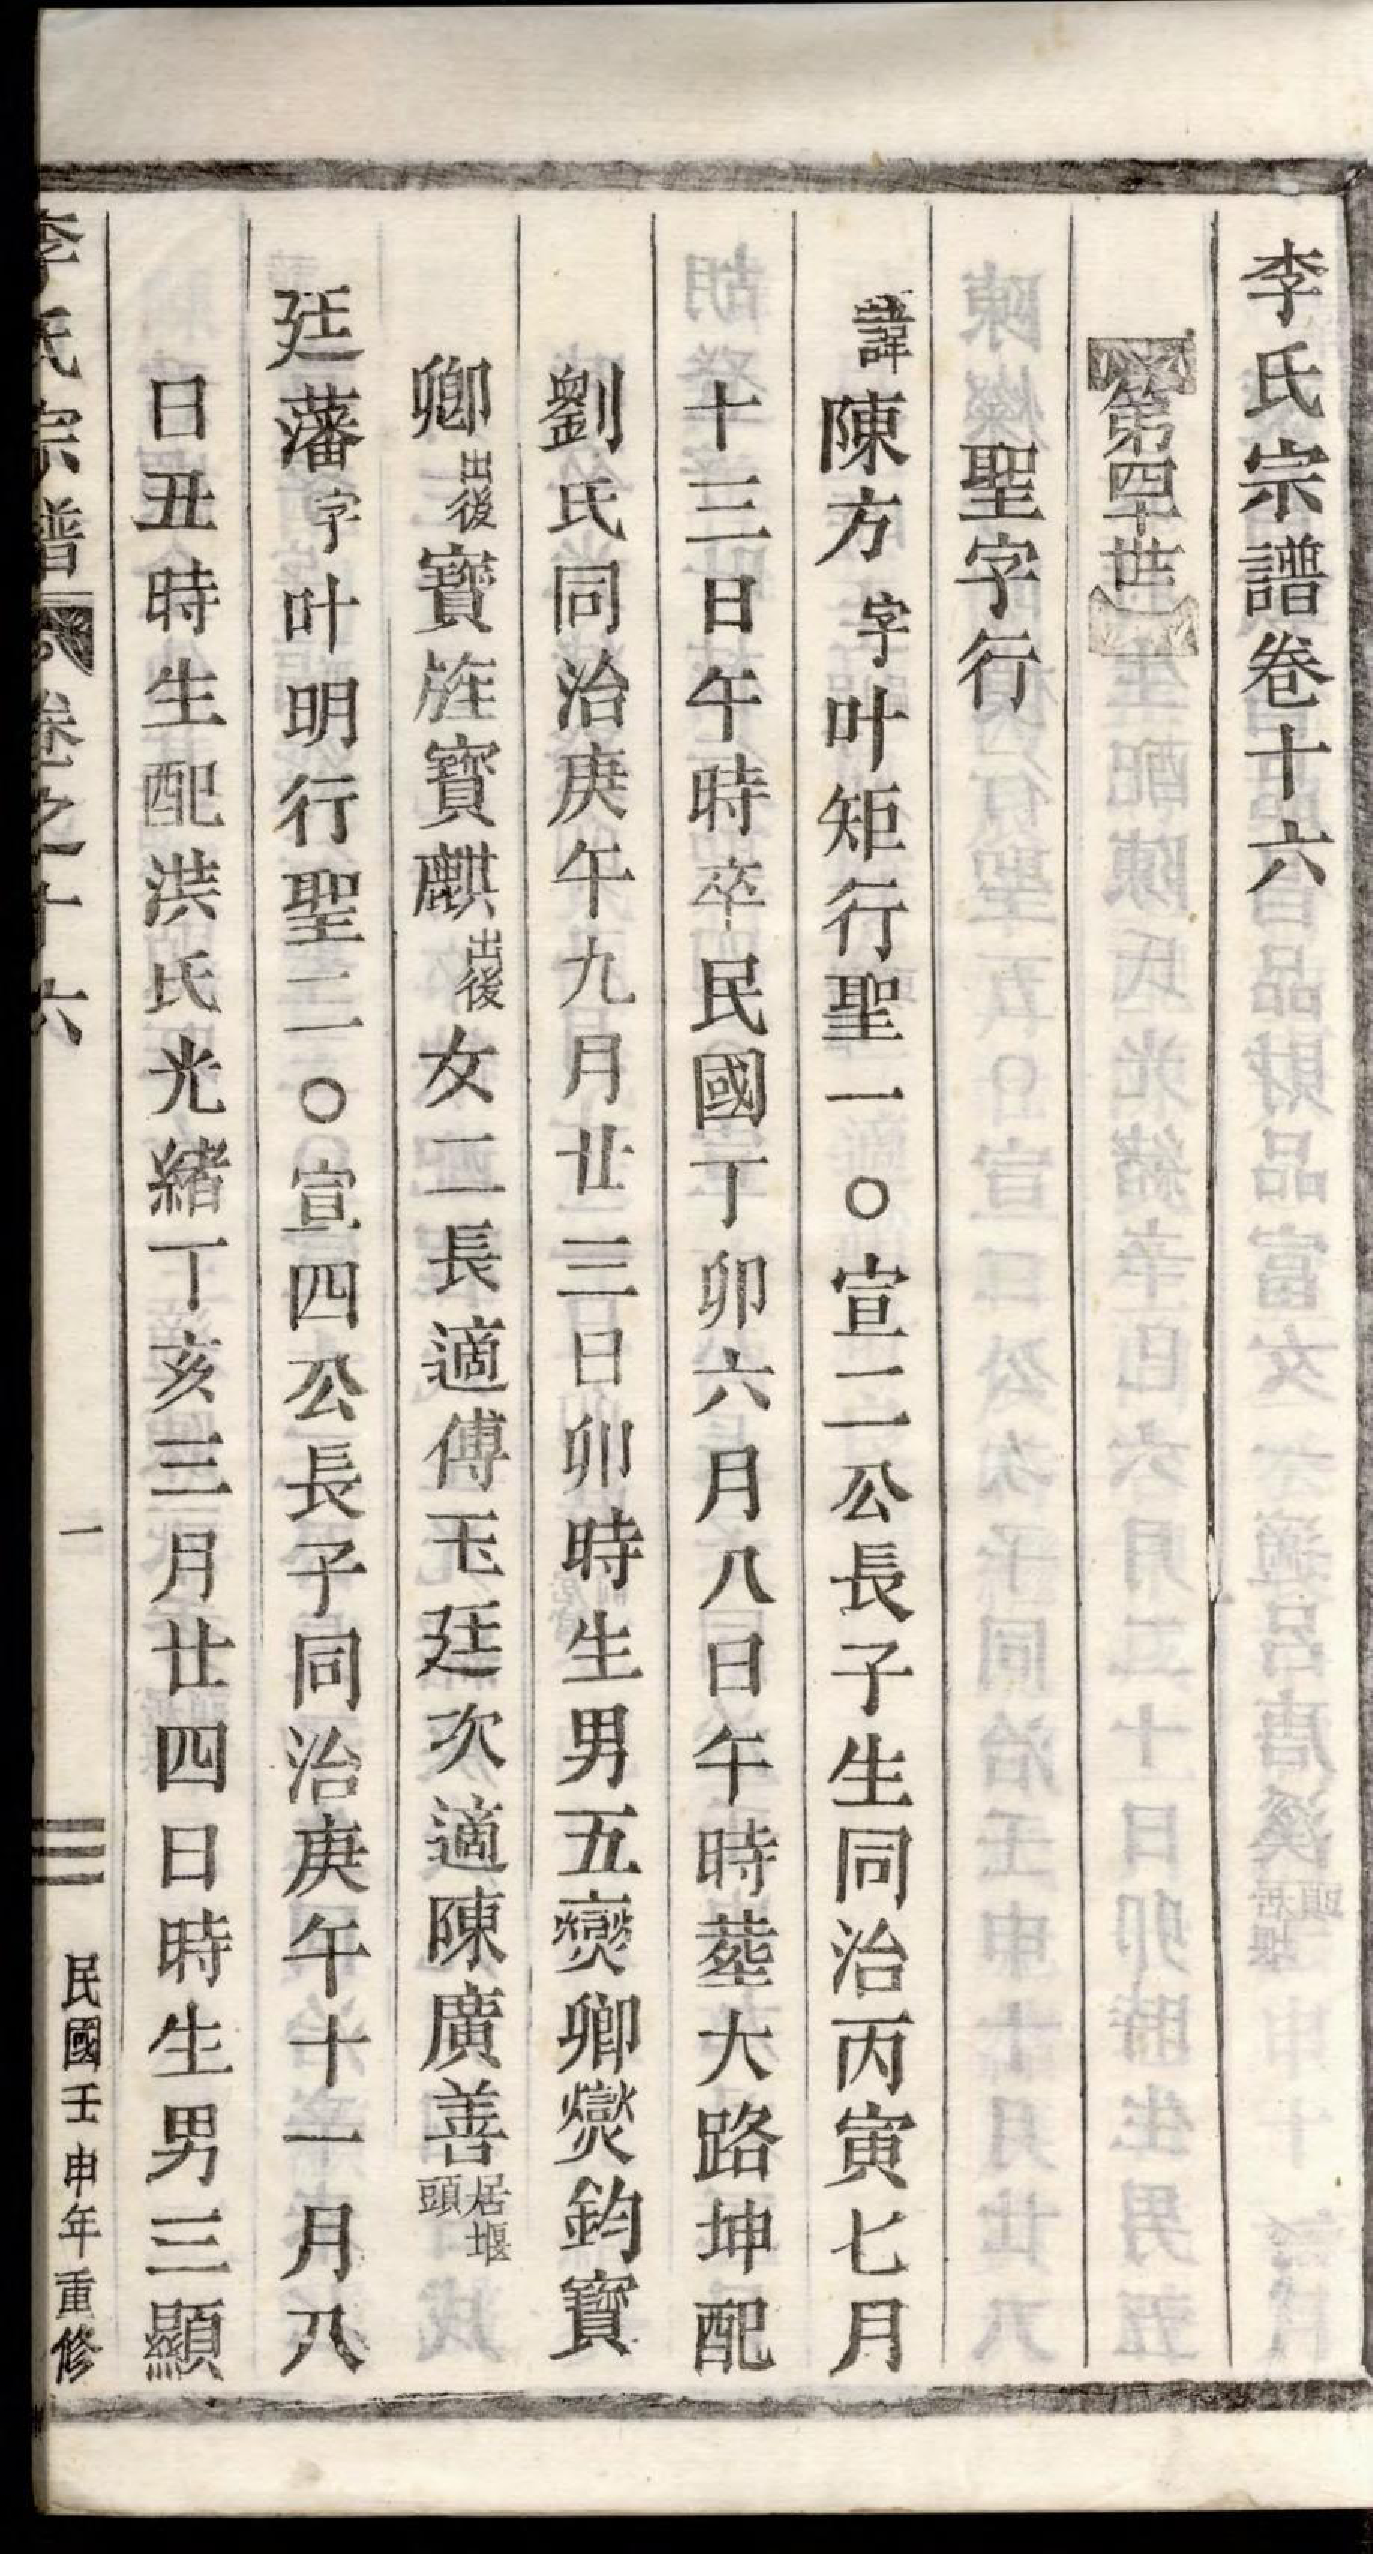 李氏宗譜卷十六
第四十世
聖字行
諱陳方字叶矩行聖一○宣二公長子生同治丙寅七月
十三日午時卒民國丁卯六月八日午時塟大路坤配
劉氏同治庚午九月廿三日卯時生男五奱卿奱鈞寶
卿出後寶旌寶麒出後女二長適傅玉廷次適陳廣善居堰頭
廷藩字叶明行聖二○宣四公長子同治庚午十一月八
日丑時生配洪氏光緒丁亥三月廿四日時生男三顯
李氏宗譜 卷之十六 一 民國壬申年重修